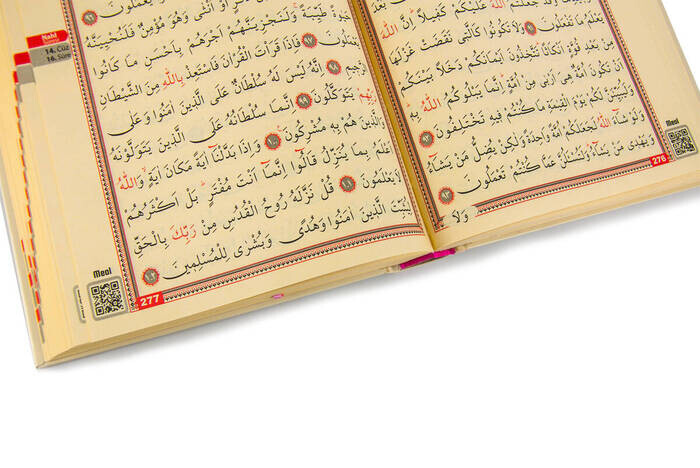 جَعَلْتُمُ اللّٰهَ عَلَيْكُمْ كَفِيلًا اِنَّ اللّٰهَ
يَعْلَمُ مَا تَفْعَلُونَ ٩١ وَلَا تَكُونُوا كَالَّتِي نَقَضَتْ غَزْلَهَا
مِنْ بَعْدِ قُوَّةٍ اَنْكَاثًا تَتَّخِذُونَ اَيْمَانَكُمْ دَخَلًا بَيْنَكُمْ
اَنْ تَكُونَ اُمَّةٌ هِيَ اَرْبٰى مِنْ اُمَّةٍ اِنَّمَا يَبْلُوكُمُ اللّٰهُ بِهٖ
وَلَيُبَيِّنَنَّ لَكُمْ يَوْمَ الْقِيٰمَةِ مَا كُنْتُمْ فِيهِ تَخْتَلِفُونَ ٩٢
وَلَوْ شَاءَ اللّٰهُ لَجَعَلَكُمْ اُمَّةً وَاحِدَةً وَلٰكِنْ يُضِلُّ مَنْ يَشَاءُ
وَيَهْدِي مَنْ يَشَاءُ وَلَتُسْـَٔلُنَّ عَمَّا كُنْتُمْ تَعْمَلُونَ ٩٣
وَلَا
276
Meal
Nahl
14. Cüz
16. Sûre
حَيٰوةً طَيِّبَةً وَلَنَجْزِيَنَّهُمْ اَجْرَهُمْ بِاَحْسَنِ مَا كَانُوا
يَعْمَلُونَ ٩٧ فَاِذَا قَرَأْتَ الْقُرْاٰنَ فَاسْتَعِذْ بِاللّٰهِ مِنَ الشَّيْطَانِ
الرَّجِيمِ ٩٨ اِنَّهُ لَيْسَ لَهُ سُلْطَانٌ عَلَى الَّذِينَ اٰمَنُوا وَعَلٰى
رَبِّهِمْ يَتَوَكَّلُونَ ٩٩ اِنَّمَا سُلْطَانُهُ عَلَى الَّذِينَ يَتَوَلَّوْنَهُ
وَالَّذِينَ هُمْ بِهٖ مُشْرِكُونَ ١٠٠ وَاِذَا بَدَّلْنَا اٰيَةً مَكَانَ اٰيَةٍ وَاللّٰهُ
اَعْلَمُ بِمَا يُنَزِّلُ قَالُوا اِنَّمَا اَنْتَ مُفْتَرٍ بَلْ اَكْثَرُهُمْ
لَا يَعْلَمُونَ ١٠١ قُلْ نَزَّلَهُ رُوحُ الْقُدُسِ مِنْ رَبِّكَ بِالْحَقِّ
لِيُثَبِّتَ الَّذِينَ اٰمَنُوا وَهُدًى وَبُشْرٰى لِلْمُسْلِمِينَ ١٠٢
277
Meal